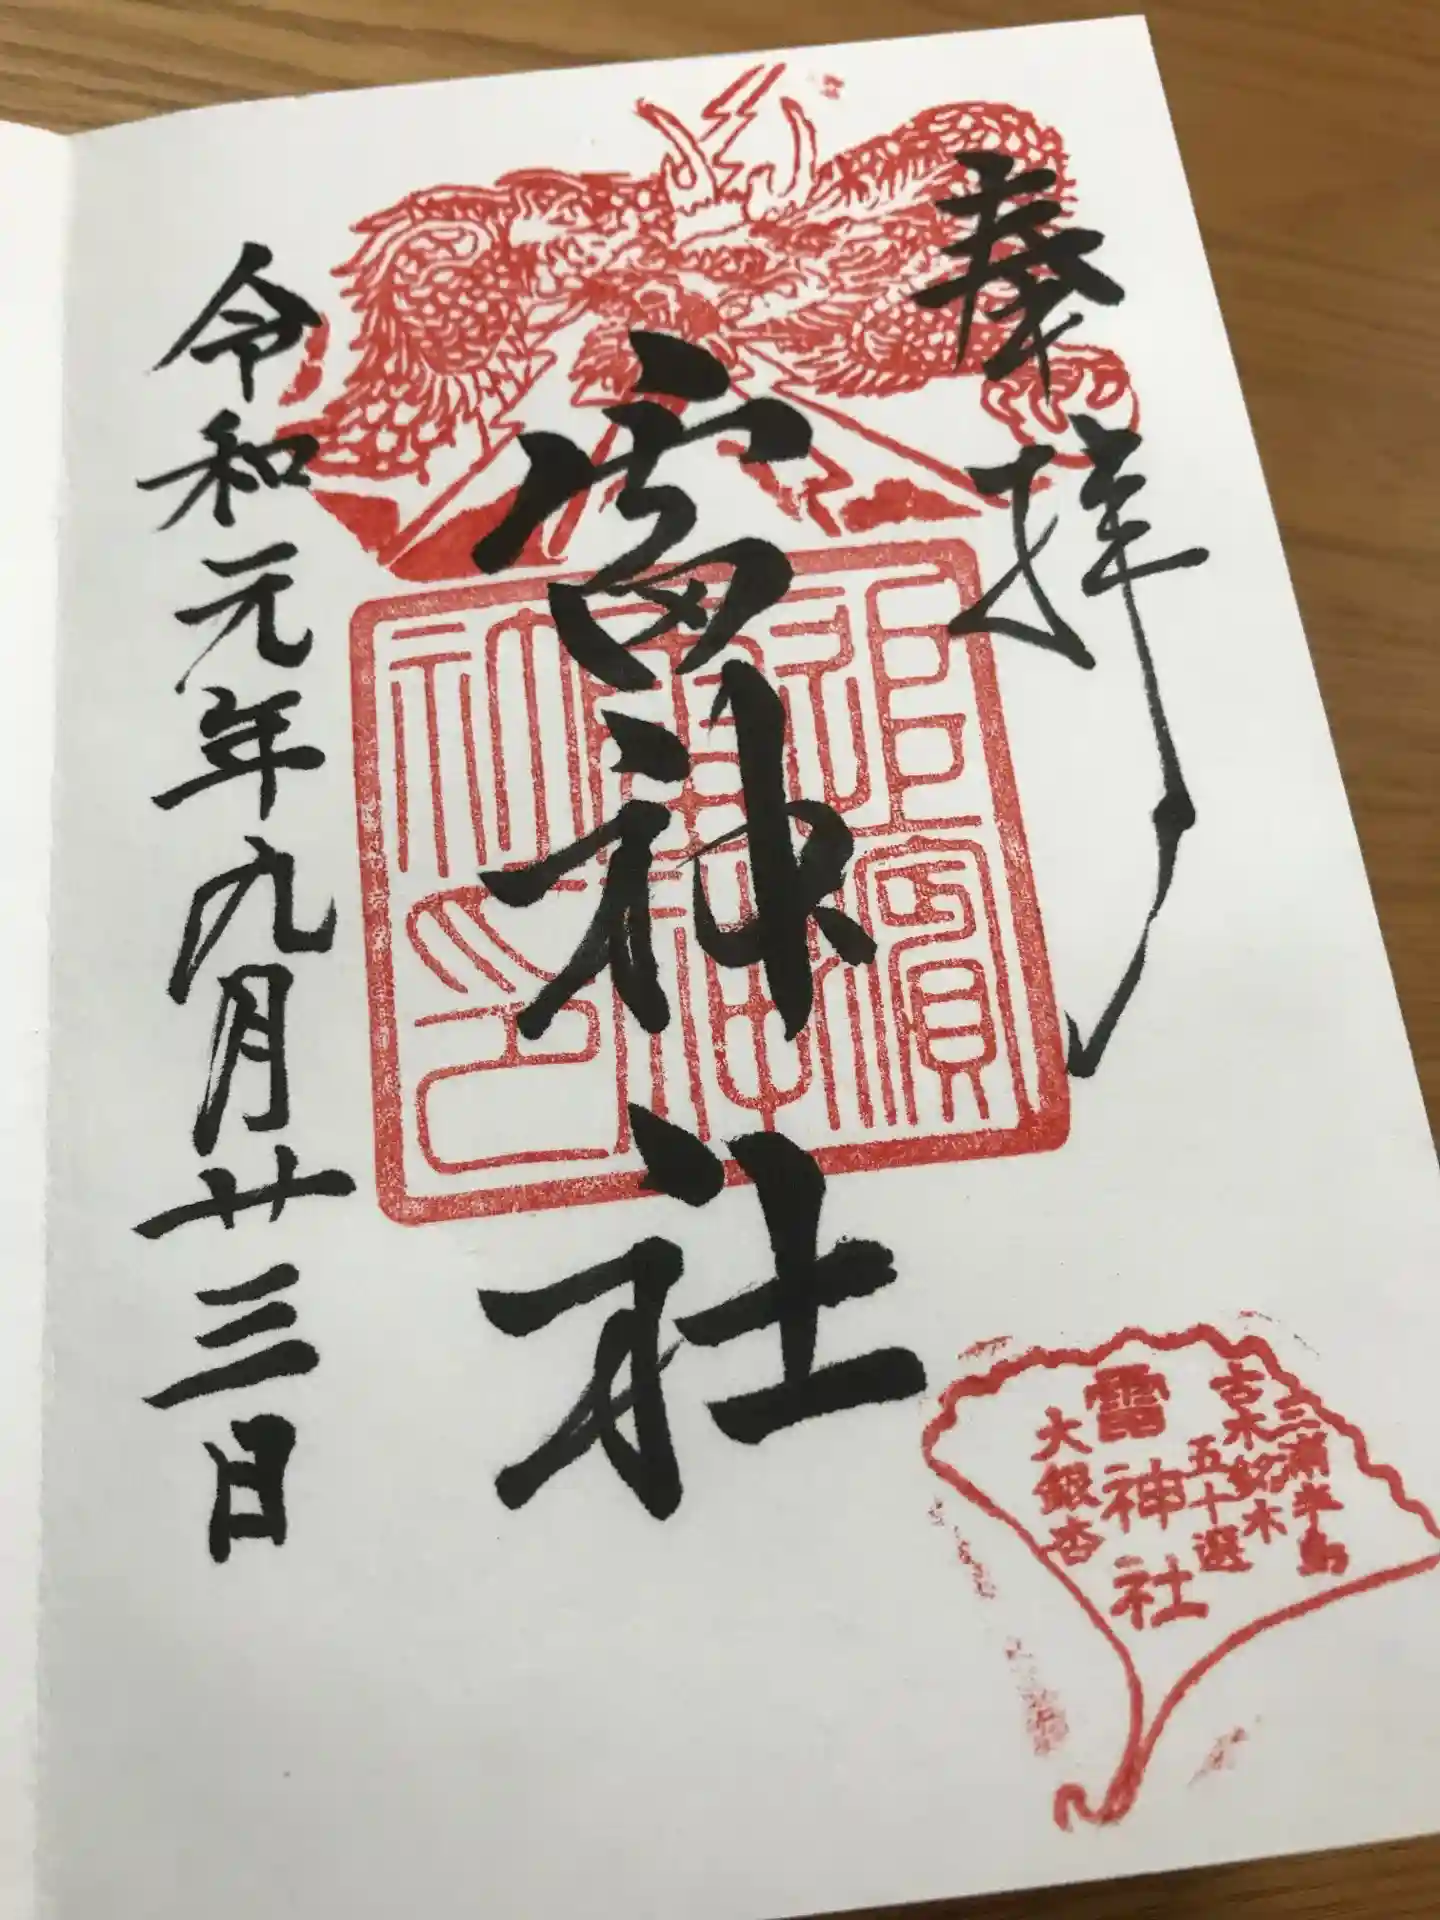 奉拝
雷神社
令和元年九月廿三日
追濱
雷神
社印
三浦半島
古木銘木
五十選
雷神社
大銀杏